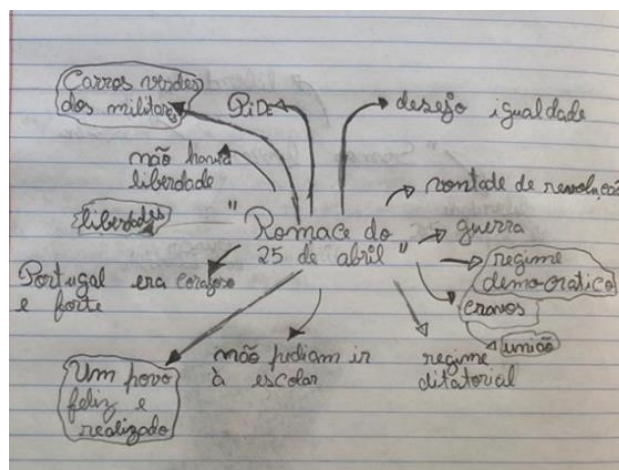 Carros verdes
dos militares
PiDE
desejo igualdade
não havia
liberdade
vontade de revolução
liberdades
" Romace do
25 de abril "
guerra
regime
democratico
Portugal era corajoso
e forte
cravos
união
Um povo
feliz e
realizado
não pudiam ir
à escolar
regime
ditatorial